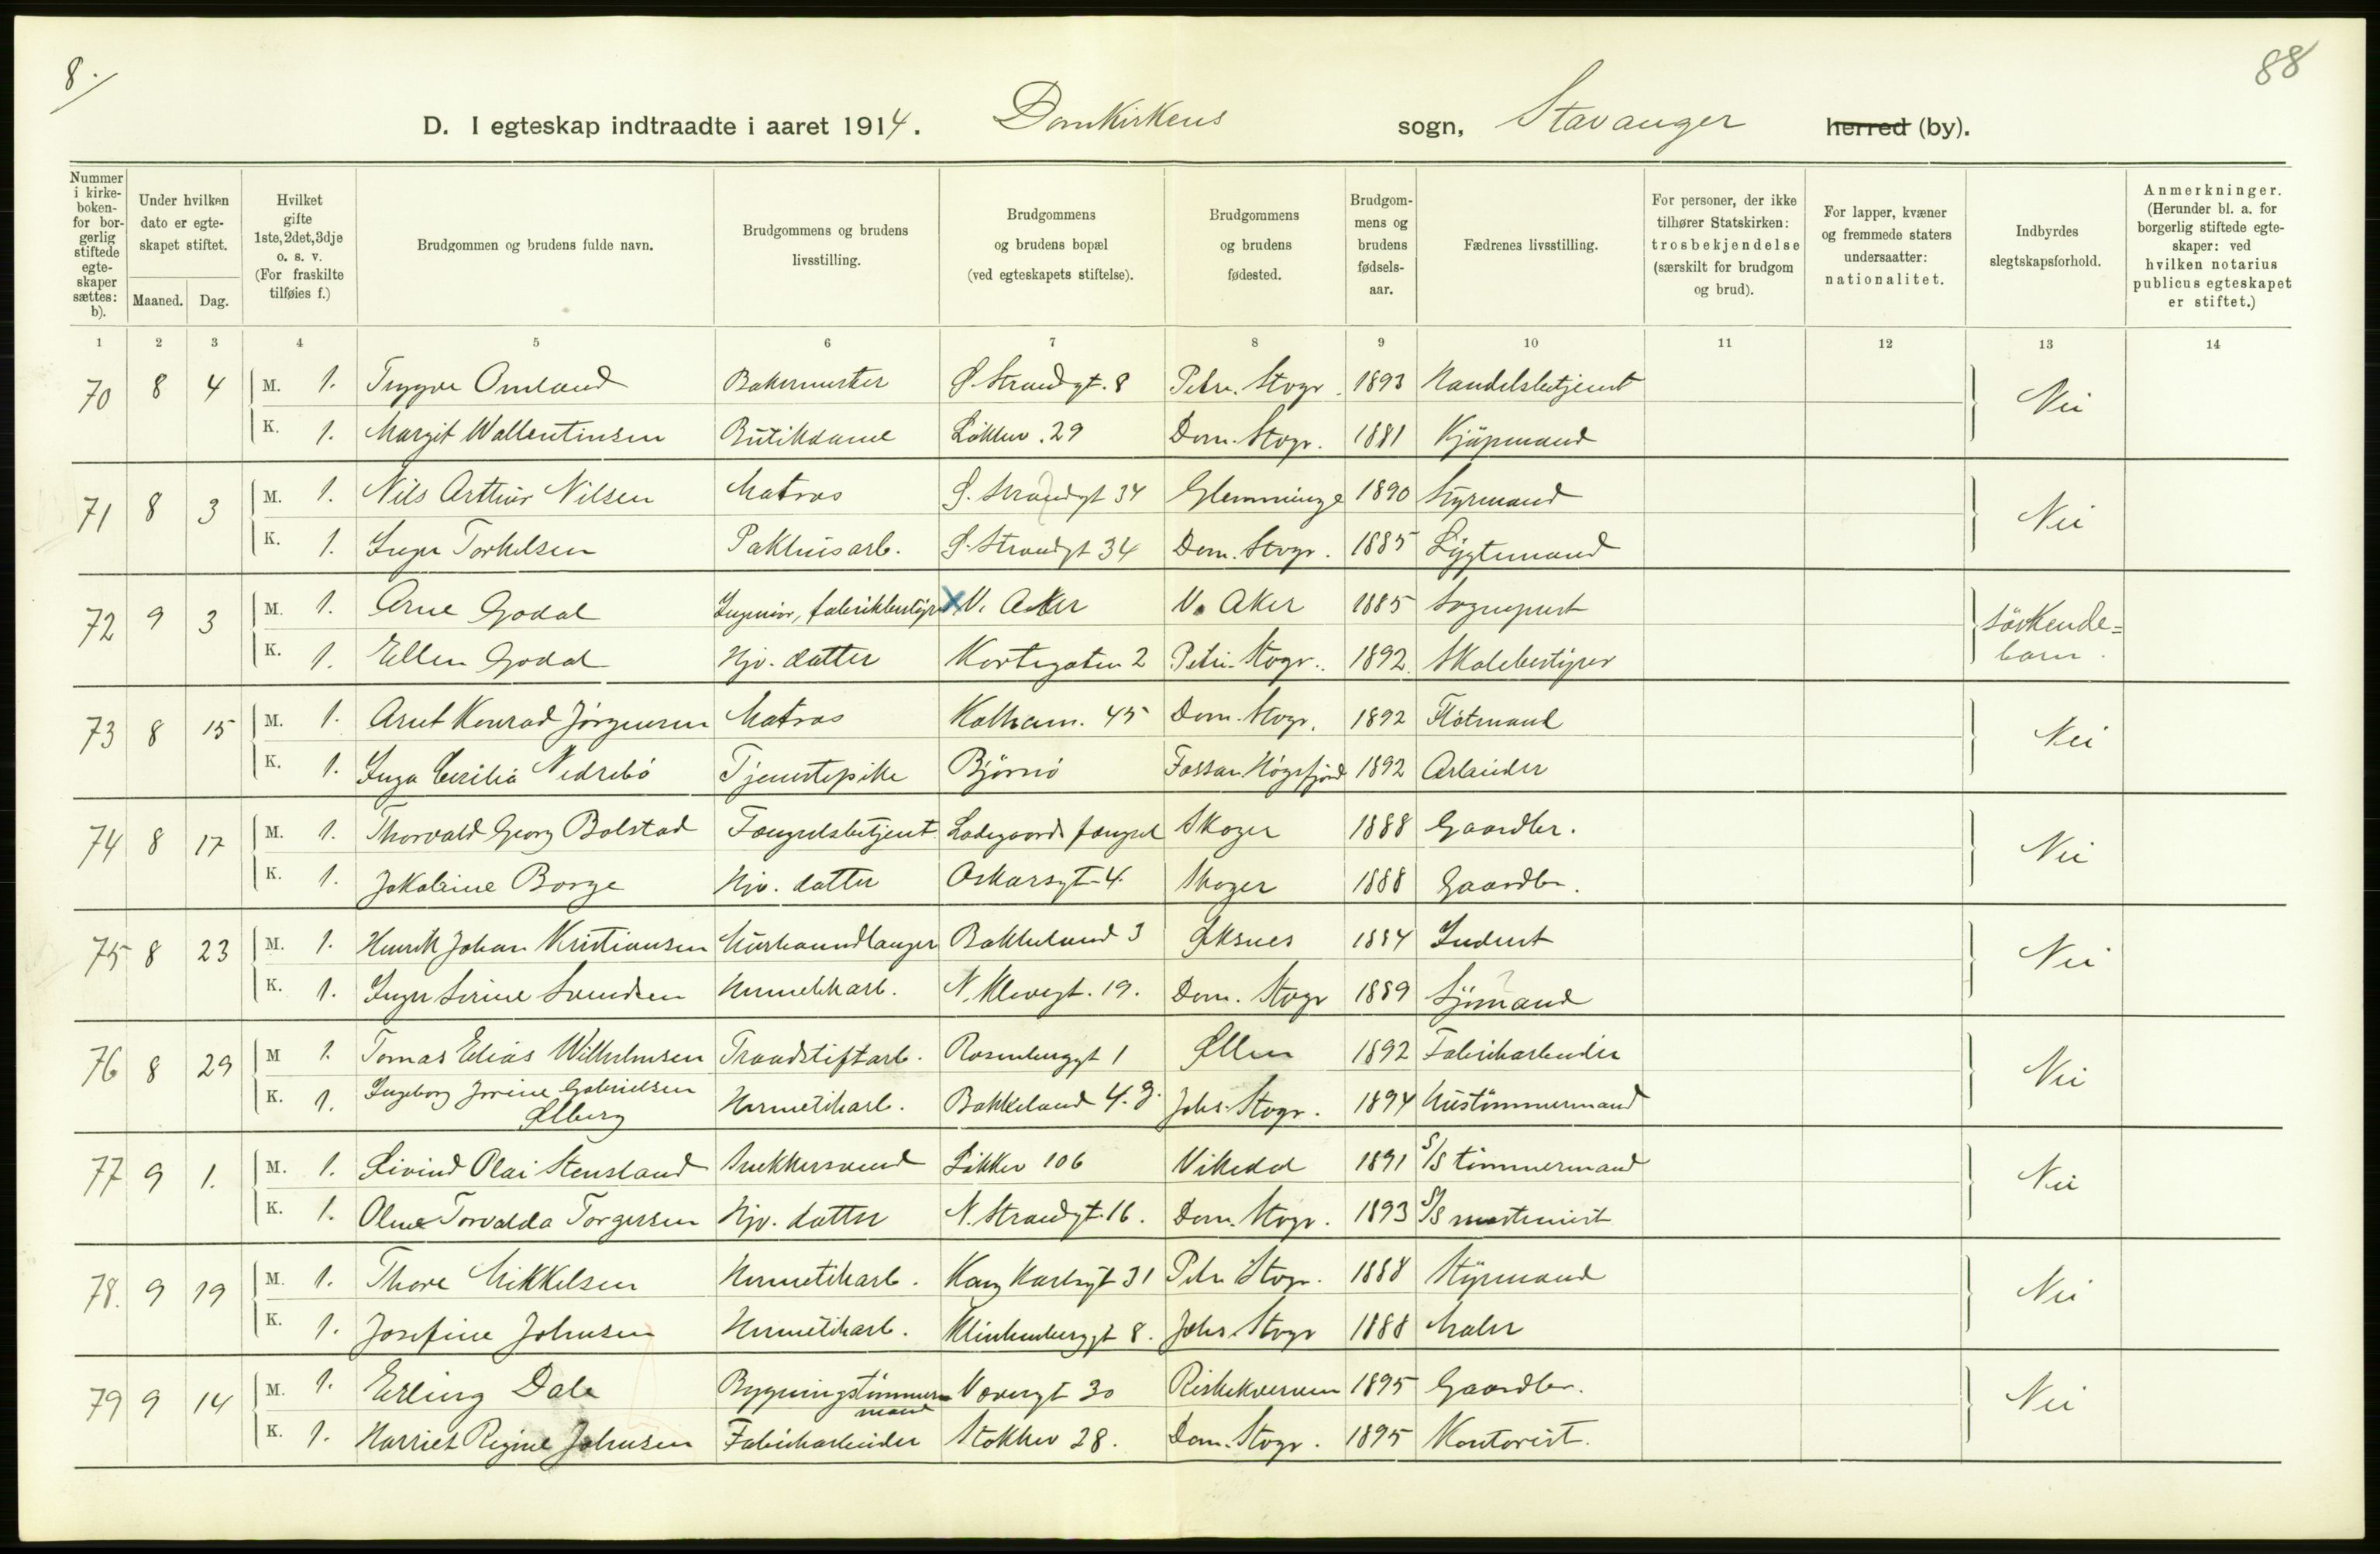 8.
88
D. I egteskap indtraadte i aaret 1914. Domkirkens sogn, Stavanger herred (by).
Nummer i kirkeboken- for borgerlig stiftede egteskaper sættes: b).
Under hvilken dato er egteskapet stiftet.
Maaned. Dag.
Hvilket gifte 1ste, 2det, 3dje o. s. v. (For fraskilte tilføies f.)
Brudgommen og brudens fulde navn.
Brudgommens og brudens livsstilling.
Brudgommens og brudens bopæl (ved egteskapets stiftelse).
Brudgommens og brudens fødested.
Brudgommens og brudens fødselsaar.
Fædrenes livsstilling.
For personer, der ikke tilhører Statskirken: trosbekjendelse (særskilt for brudgom og brud).
For lapper, kvæner og fremmede staters undersaatter: nationalitet.
Indbyrdes slegtskapsforhold.
Anmerkninger. (Herunder bl. a. for borgerlig stiftede egteskaper: ved hvilken notarius publicus egteskapet er stiftet.)
1 2 3 4 5 6 7 8 9 10 11 12 13 14
70 8 4 M. 1. Trygve Omland Bakermester Ø. Strandgt. 8 Petri. Stvgr. 1893 Handelsbetjent Nei
K. 1. Margit Wallentinsen Butikdame Løkkev. 29 Dom. Stvgr. 1881 Kjøpmand
71 8 3 M. 1. Nils Arthur Nilsen Matros Ø. Strandgt 34 Glemminge 1890 Styrmand Nei
K. 1. Inger Torkelsen Pakhusarb. Ø. Strandgt 34 Dom. Stvgr. 1885 Lygtemand
72 9 3 M. 1. Arne Godal Ingeniør, fabrikbestyrer X V. Aker V. Aker 1885 Sogneprest Søskende=
barn.
K. 1. Ellen Godal Hjv. datter Kortegaten 2 Petri Stvgr. 1892. Skolebestyrer
73 8 15 M. 1. Arnt Konrad Jørgensen Matros Kolham. 45 Dom. Stvgr. 1892 Fløtmand Nei
K. 1. Inga Cecilia Nedrebø Tjenestepike Bjørnø Fossan Høgsfjord 1892 Arbeider
74 8 17 M. 1. Thorvald Georg Bolstad Fængselsbetjent Ladegaards fængsel Skoger 1888 Gaardbr. Nei
K. 1. Jakobine Borge Hjv. datter Oskarsgt. 4. Skoger 1888 Gaardbr.
75 8 23 M. 1. Henrik Johan Kristiansen Murhaandlanger Bakkeland 3 Øksnes 1884 Inderst Nei
K. 1. Inger Serine Svendsen Hermetikarb. N. Klevegt. 19. Dom. Stvgr 1889 Sjømand
76 8 29 M 1. Tomas Elias Wilhelmsen Traadstiftarb. Rosenberggt 1 Ølen 1892 Fabrikarbeider Nei
K. 1. Ingeborg Jorine Gabrielsen
Ølberg Hermetikarb. Bakkeland 4. Johs. Stvgr. 1894 Hustømmermand
77 9 1. M. 1. Eivind Olai Stensland Snekkersvend Løkkev 106 Vikedal 1891 S/S tømmermand Nei
K. 1. Oline Torvalda Torgersen Hjv. datter N. Strandgt. 16. Dom. Stvgr. 1893 S/S maskinist
78. 9 19 M. 1. Thore Mikkelsen Hermetikarb. Kong Karlsgt 31 Petri Stvgr. 1888 Styrmand Nei
K. 1. Josefine Johnsen Hermetikarb. Klinkenberggt 8. Johs. Stvgr 1888 Maler
79 9 14 M. 1. Erling Dale Bygningstømmer=
mand Vævergt 30 Riskekvernen 1895 Gaardbr. Nei
K. 1. Harriet Regine Johnsen Fabrikarbeider Stokkev 28. Dom. Stvgr. 1895 Kontorist.